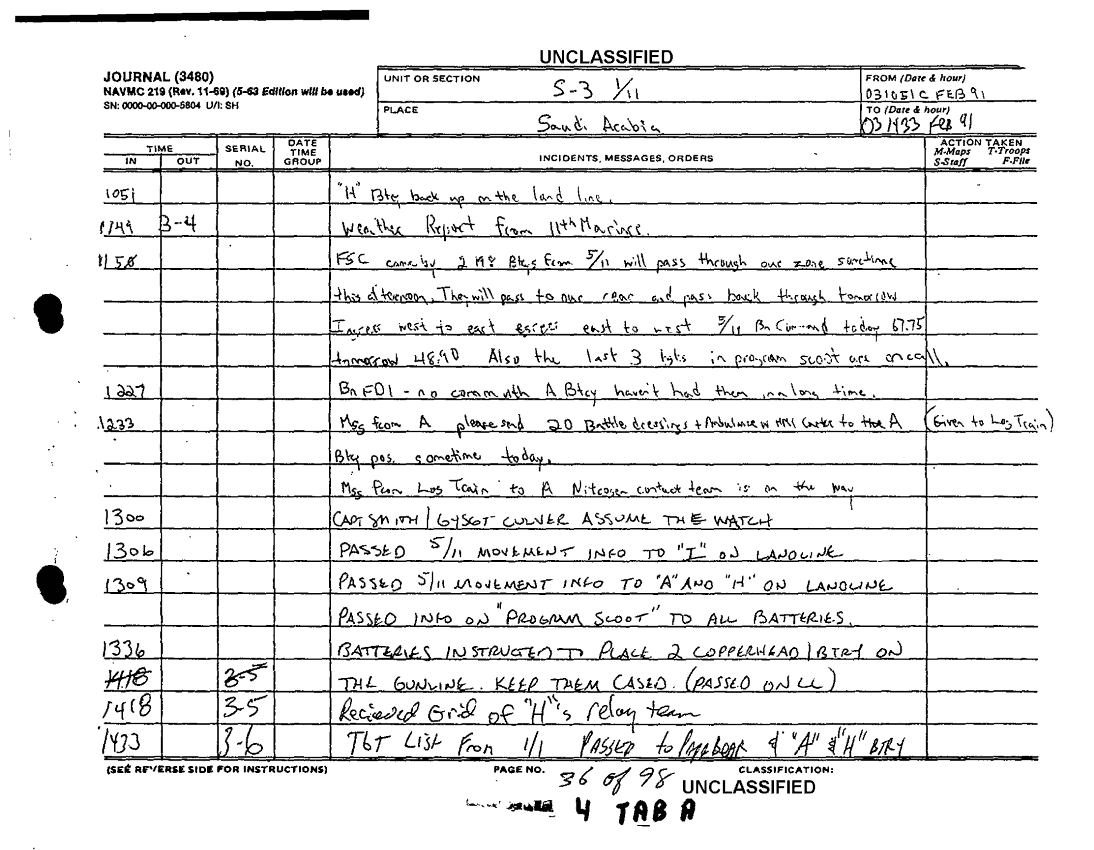 UNCLASSIFIED
JOURNAL (3480)
NAVMC 219 (Rev. 11-69) (5-63 Edition will be used)
SN: 0000-00-000-5804 U/I: SH
UNIT OR SECTION
S-3 1/11
FROM (Date & hour)
031051C FEB 91
PLACE
Saudi Arabia
TO (Date & hour)
031433 Feb 91
TIME
IN OUT
SERIAL NO.
DATE TIME GROUP
INCIDENTS, MESSAGES, ORDERS
ACTION TAKEN
M-Maps T-Troops
S-Staff F-File
1051 "H" Btry back up on the land line.
1149 3-4 Weather Report from 11th Marines.
1158 FSC came by 2 M198 Btrys from 5/11 will pass through our zone sometime
this afternoon. They will pass to our rear and pass back through tomorrow
Ingress west to east egress east to west 5/11 Bn Command today 67.75
tomorrow 48.90 Also the last 3 tgts in program scoot are on call.
1227 Bn FDI - no comm with A Btry haven't had them in a long time.
1233 Msg from A please send 20 Battle dressings + Ambulance w to the A (Given to Log Train)
Btry pos. sometime today.
Msg from Log Train to A Nitrogen contact team is on the way
1300 CAPT SMITH / GYSGT CULVER ASSUME THE WATCH
1306 PASSED 5/11 MOVEMENT INFO TO "I" ON LANDLINE
1309 PASSED 5/11 MOVEMENT INFO TO "A" AND "H" ON LANDLINE
PASSED INFO ON "PROGRAM SCOOT" TO ALL BATTERIES.
1336 BATTERIES INSTRUCTED TO PLACE 2 COPPERHEAD / BTRY ON
1418 3-5 THE GUNLINE. KEEP THEM CASED. (PASSED ON LL)
1418 3-5 Recieved Grid of "H"'s relay team
1433 3-6 TGT LIST From 1/1 PASSED to Papa bear & "A" & "H" BTRY
(SEE REVERSE SIDE FOR INSTRUCTIONS)
PAGE NO. 36 of 98
CLASSIFICATION:
UNCLASSIFIED
4 TAB A